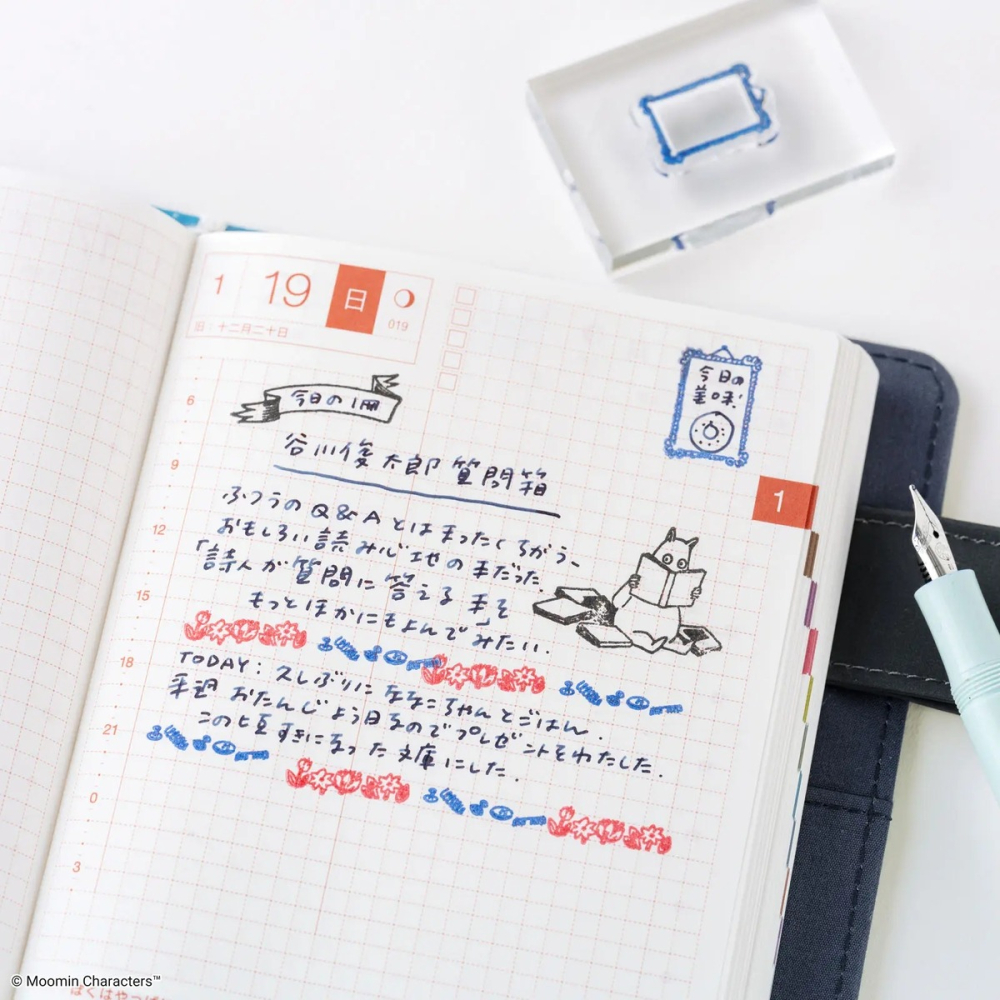 1 19 日
019
旧：十二月二十日
今日の1冊
今日の
美味
谷川俊太郎質問箱
ふつうのQ&Aとはまったくちがう、
おもしろい読み心地の本だった。
「詩人が質問に答える本」を
もっとほかにもよんでみたい.
TODAY: 久しぶりに ななこちゃんとごはん.
来週 おたんじょう日なので プレゼントをわたした.
この1夏 すきになった 文庫にした.
6
9
12
15
18
21
0
3
1
© Moomin Characters™